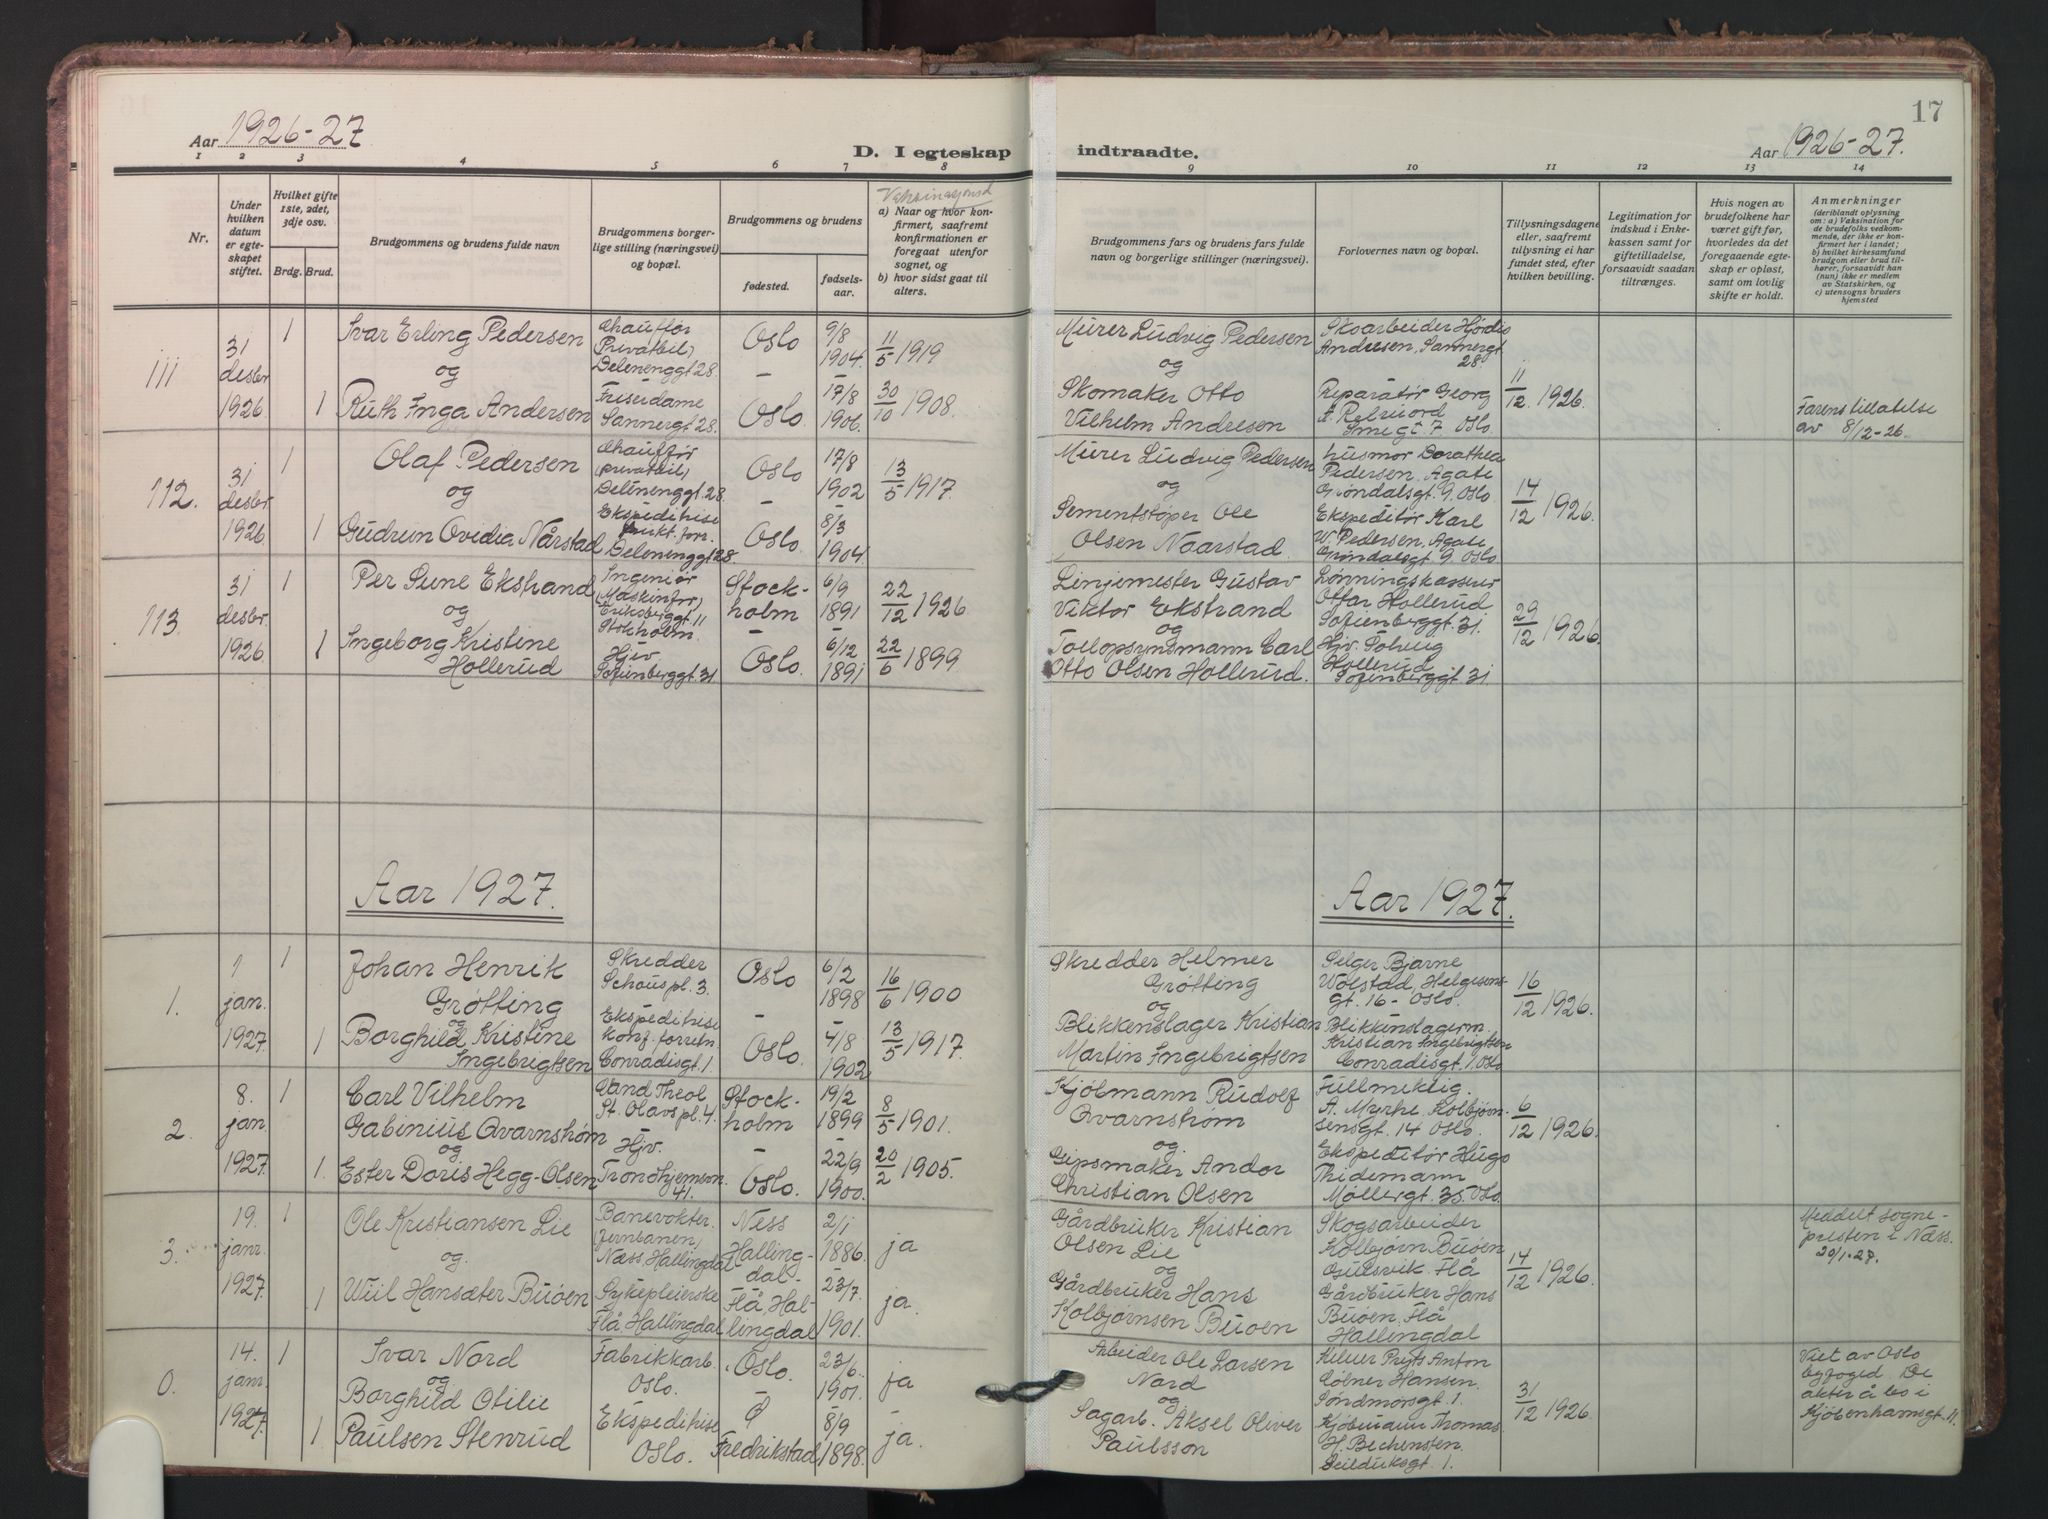 Aar 1926-27
D. I egteskap
1 2 3 4 5 6 7 8
Nr.
Under hvilken datum er egteskapet stiftet.
Hvilket gifte 1ste, 2det, 3dje osv.
Brdg. Brud.
Brudgommens og brudens fulde navn
Brudgommens borgerlige stilling (næringsvei) og bopæl.
Brudgommens og brudens
fødested.
fødselsaar.
Vaksinasjonsd
a) Naar og hvor konfirmert, saafremt konfirmationen er foregaat utenfor sognet, og
b) hvor sidst gaat til alters.
111
31 desbr 1926
1
Ivar Erling Pedersen
og
1 Ruth Inga Andersen
Chauffør
(Privatbil)
Delenenggt 28.
Friserdame
Sannergt 28.
Oslo
-
Oslo
9/8
1904.
-
17/8
1906.
11/5 1919
30/10 1908.
112.
31 desbr 1926
1
Olaf Pedersen
og
1 Gudrun Ovidia Nårstad
Chauffør
(privatbil)
Delenenggt. 28.
Ekspeditrise
frukt. forr.
Delenenggt 28.
Oslo
-
Oslo.
17/8
1902
8/3
1904.
13/5 1917.
113.
31 desbr. 1926
1
Per Sune Ekstrand
og
1 Ingeborg Kristine
Hollerud
Ingeniør
(Maskinfor)
Eriksberggt. 11
Stokholm.
Hjv
Sofienberggt. 31
Stockholm
-
Oslo.
6/9
1891
-
6/12
1891
22/12 1926
22/6 1899
Aar 1927.
1.
1 jan. 1927.
1
Johan Henrik
Grøtting
og
1 Borghild Kristine
Ingebrigtsen
Skredder
Schouspl. 3.
Ekspeditrise
konf. forretn.
Conradisgt. 1
Oslo
-
Oslo.
6/2
1898
-
4/8
1902
16/6 1900
13/5 1917.
2.
8. jan 1927.
1
Carl Vilhelm
Gabinius Qvarnstrøm
og
1. Ester Doris Hegg-Olsen
Cand Theol
St. Olavs pl. 4.
Hjv.
Trondhjemsvn
41.
Stockholm
-
Oslo.
19/2
1899
-
22/9
1900.
8/5 1901.
20/2 1905.
3.
19. janr. 1927.
1
Ole Kristiansen Lie
og.
1 Hansæter Buøen
Banevokter.
(Jernbanen)
Næss, Hallingdal
Sykepleierske
Flå, Hallingdal
Ness
Hallingdal-
Flå, Hallingdal
2/1
1886.
-
23/7.
1901.
ja
-
ja.
0.
14. janr. 1927.
1
Ivar Nord
og
Borghild Otilie
1 Paulsen Stenrud
Fabrikkarb.
Oslo.
Ekspeditrise
Oslo.
Oslo.
Fredrikstad
23/6
1901.
-
8/9
1898.
ja
-
ja.
17
indtraadte.
Aar 1926-27.
9 10 11 12 13 14
Brudgommens fars og brudens fars fulde navn og borgerlige stillinger (næringsvei).
Forlovernes navn og bopæl.
Tillysningsdagene eller, saafremt tillysning ei har fundet sted, efter hvilken bevilling.
Legitimation for indskud i Enkekassen samt for giftetilladelse, forsaavidt saadan tiltrænges.
Hvis nogen av brudefolkene har været gift før, hvorledes da det foregaaende egteskap er opløst, samt om lovlig skifte er holdt.
Anmerkninger
(deriblandt oplysning om: a) Vaksination for de brudefolks vedkommende, der ikke er konfirmert her i landet; b) hvilket kirkesamfund brudgom eller brud tilhører, forsaavidt han (hun) ikke er medlem av Statskirken, og c) utensogns bruders hjemsted
Murer Ludvig Pedersen
og
Skomaker Otto
Vilhelm Andresen
Skoarbeider Hjørdis
Andresen, Sannergt
28.
Reparatør Georg
Smegt 7 Oslo
11/12 1926.
Farens tillatelse
av 8/12-26.
Murer Ludvig Pedersen
og
Sementstøper Ole
Olsen Naarstad.
husmor Dorathea
Pedersen, Agate
Grøndalsgt. 9. Oslo
Ekspeditør Karl
W. Pedersen, Agate
Grøndalsgt 9. Oslo
14/12 1926.
Linjemester Gustav
Viktor Ekstrand
og
Tollopsynsmann Carl
Otto Olsen Hollerud.
Lønningskasserer
Ottar Hollerud
Sofienberggt. 31.
Hjv. Solveig
Hollerud
Sofienberggt 31.
29/12 1926.
Aar 1927.
Skredder Helmer
Grøtting
og
Blikkenslager Kristian
Martin Ingebrigtsen
Selger Bjarne
Wolstad, Helgesens-
gt. 16- Oslo.
Blikkenslagerm.
Kristian Ingebrigtsen
Conradisgt. 1. Oslo
16/12 1926.
Kjøbmann Rudolf
Qvarnstrøm
og.
Gipsmaker Andor
Christian Olsen
Fullmektig.
A. Myrhe Kolbjørn-
sensgt. 14 Oslo.
Ekspeditør Hugo
Thidemann
Møllergt. 35. Oslo
6/12 1926.
Gårdbruker Kristian
Olsen Lie
og
Gårdbruker Hans
Kolbjørnsen Buøen
Skogsarbeider
Kolbjørn Buøen
Gulsvik. Flå
Gårdbruker Hans
Buøen. Flå
Hallingdal
14/12 1926.
Meddelt sogne-
presten i Næss.
20/1-27.
Arbeider Ole Larsen
Nord
og
Sagarb. Aksel Oliver
Paulsson
Anton
Hansen.
Søndmørsgt. 1.
Kjøbmann Thomas
H. Bechensten.
Seilduksgt. 1.
31/12 1926.
Viet av Oslo
byfogd. De
akter å bo i
Kjøbenhavnsgt. 11.